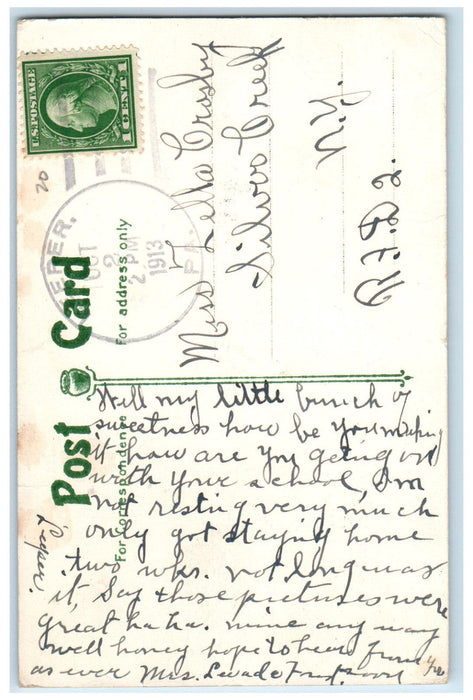 U.S. POSTAGE
1 CENT 1
20
OCT
2
2 PM
1913
PA.
Post Card
For address only
For correspondence
Miss Zella Crosby
Silver Creek
N.Y.
R.F.D 2.
Well my little bunch of
sweetness how be you making
it how are you geing on
with your school, Im
not resting very much
only got staying home
two wks. not long was
it, Say those pictures were
great ha ha. mine any way
well honey hope to hear from
as ever Mrs.